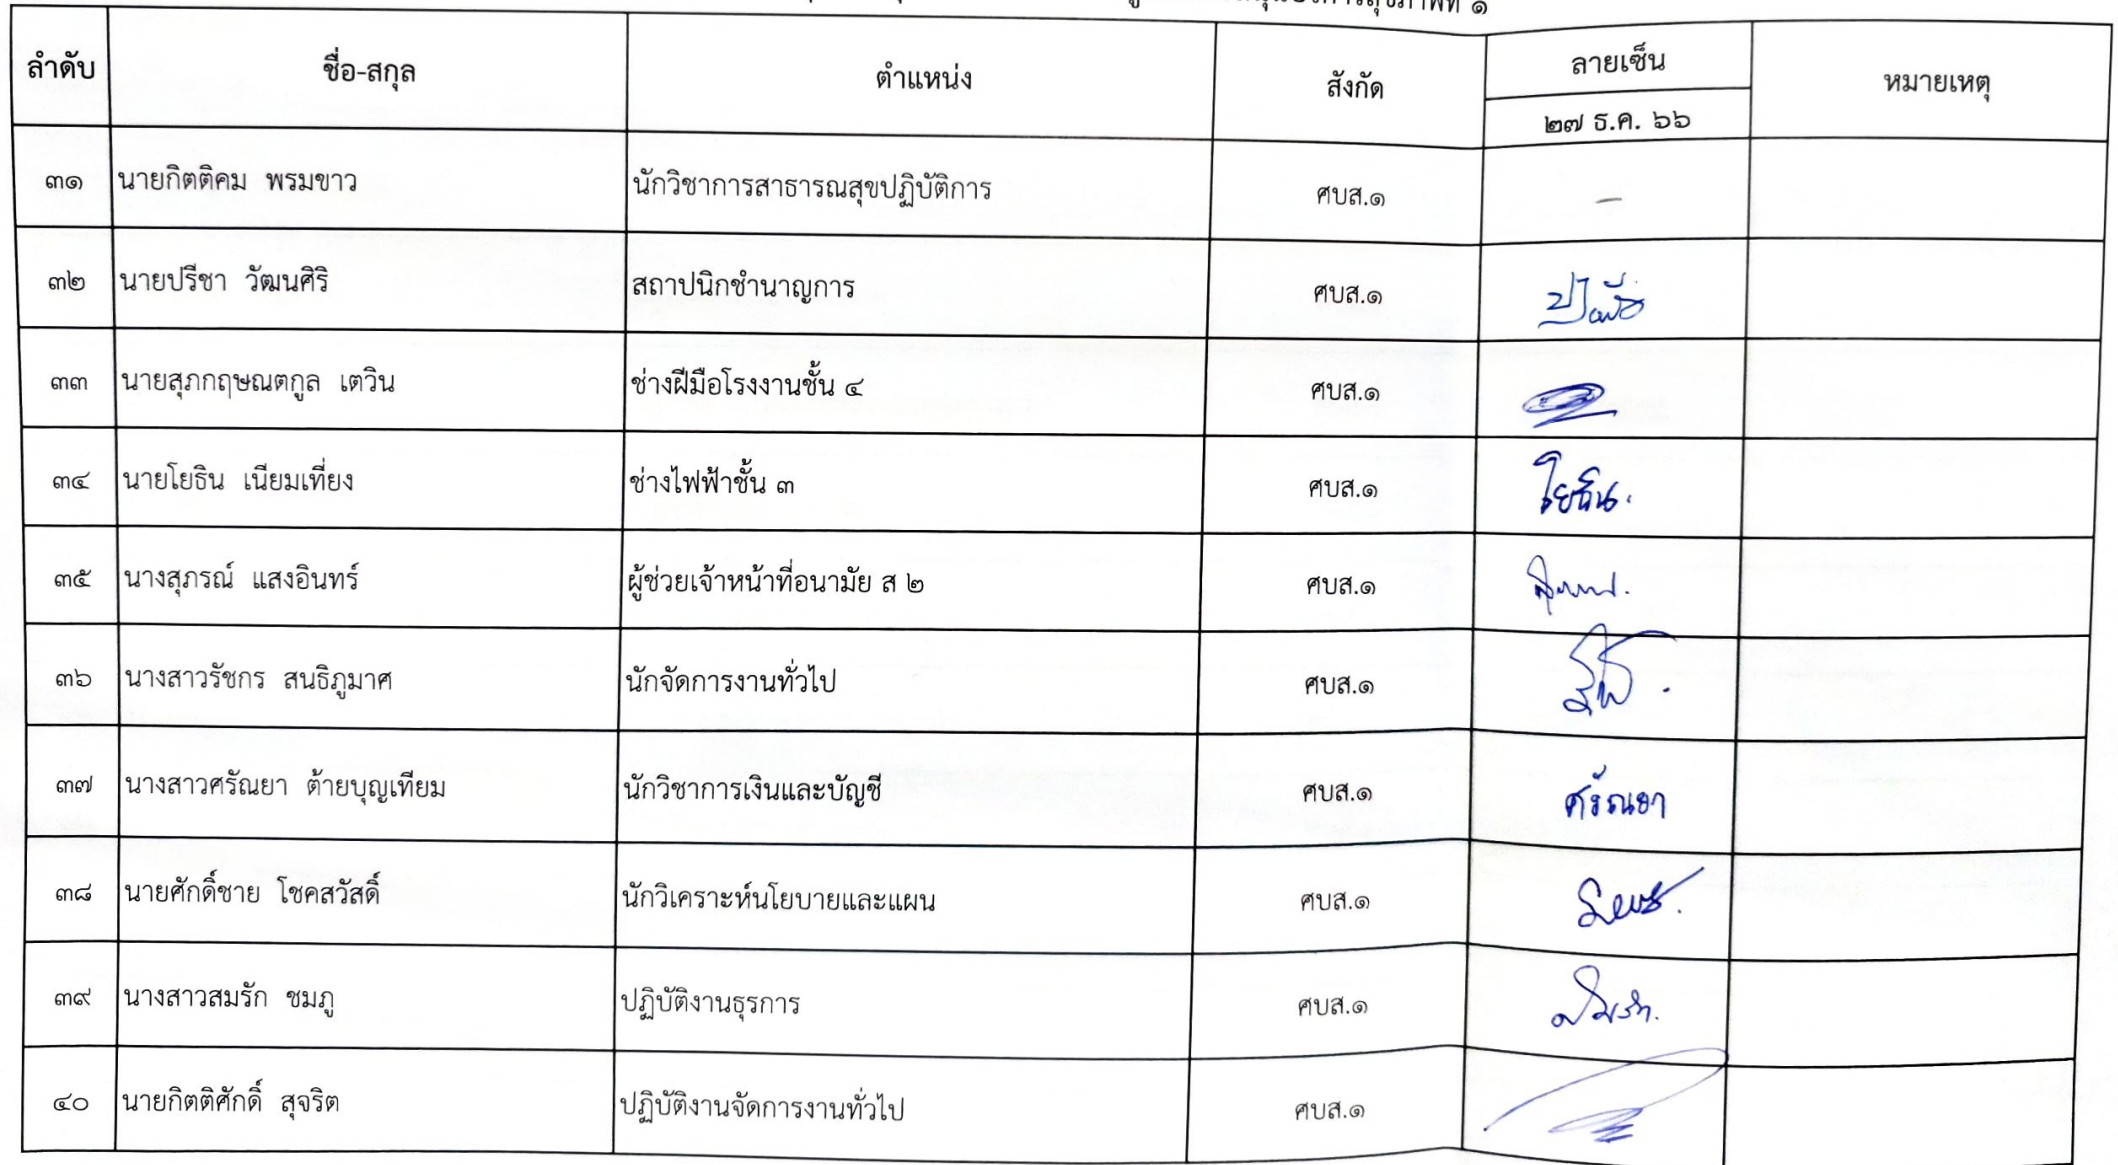 ลำดับ ชื่อ-สกุล ตำแหน่ง สังกัด ลายเซ็น หมายเหตุ
๒๗ ธ.ค. ๖๖
๓๑ นายกิตติคม พรมขาว นักวิชาการสาธารณสุขปฏิบัติการ ศบส.๑ -
๓๒ นายปรีชา วัฒนศิริ สถาปนิกชำนาญการ ศบส.๑
๓๓ นายสุภกฤษณตกูล เตวิน ช่างฝีมือโรงงานชั้น ๔ ศบส.๑
๓๔ นายโยธิน เนียมเที่ยง ช่างไฟฟ้าชั้น ๓ ศบส.๑ โยธิน.
๓๕ นางสุภรณ์ แสงอินทร์ ผู้ช่วยเจ้าหน้าที่อนามัย ส ๒ ศบส.๑
๓๖ นางสาวรัชกร สนธิภูมาศ นักจัดการงานทั่วไป ศบส.๑
๓๗ นางสาวศรัณยา ต้ายบุญเทียม นักวิชาการเงินและบัญชี ศบส.๑ ศรัณยา
๓๘ นายศักดิ์ชาย โชคสวัสดิ์ นักวิเคราะห์นโยบายและแผน ศบส.๑
๓๙ นางสาวสมรัก ชมภู ปฏิบัติงานธุรการ ศบส.๑
๔๐ นายกิตติศักดิ์ สุจริต ปฏิบัติงานจัดการงานทั่วไป ศบส.๑